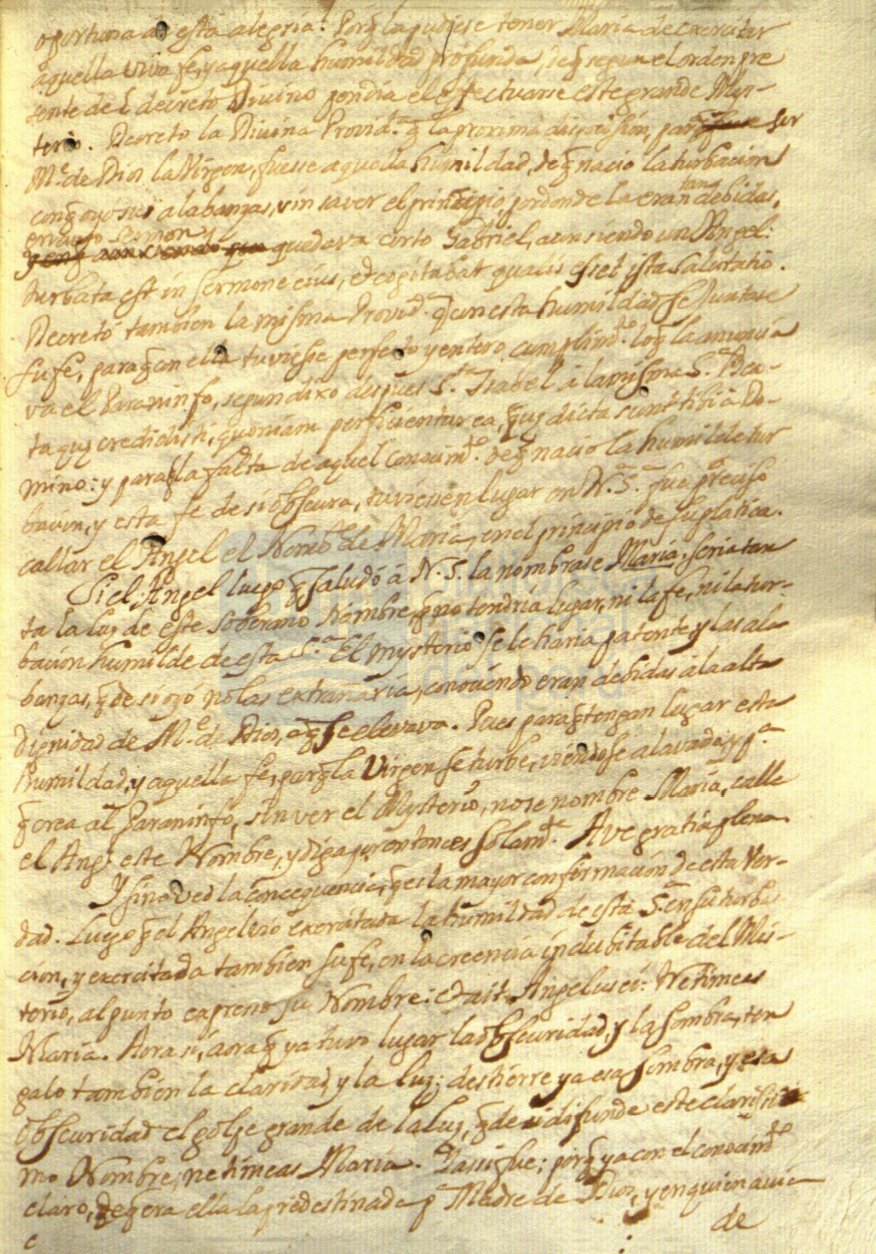 oportuna de esta alegria? Porq̃ la pudiese tener Maria de exercitar
aquella viva fe, y aquella humildad profunda, q̃ segun el orden pre
sente del decreto Divino pendia el efectuarse este grande Mys-
terio. Decreto la Divina Provid.ª q̃ la proxima disposision, para ser
M.e de Dios la Virgen, fuesse aquella humildad, de q̃ nacio la turbacion
con q̃ oyo sus alabanzas, sin saver el principio, por donde le eran tan debidas,
en cuyo sermon
quedava corto Gabriel, aun siendo un Angel:
turbata est in sermone eius, et cogitabat qualis esset ista salutatio.
Decretó tambien la misma Provid.ª q̃ con esta humildad se juntase
su fe, para q̃ con ella tuviesse perfecto y entero cumplim.to lo q̃ la anuncia
va el Paraninfo, segun dixo despues S.ta Isabel à la misma S.ª Bea-
ta quę credidisti, quoniam perficientur ea, quę dicta sunt tibi à Do-
mino: y para q̃ la falta de aquel conocim.to de q̃ nacio la humilde tur
bacion, y esta fe de si obscura, tuviesen lugar en N.ª S.ª fue preciso
callar el Angel el Nomb.e de Maria, en el principio de su platica.
Si el Angel luego q̃ saludó à N. S. la nombrase Maria. seria tan
ta la luz de este soberano Nombre, q̃ no tendria lugar, ni la fe, ni la tur-
bacion humilde de esta S.ª El mysterio se le haria patente, y las ala
banzas, q̃ de si oyó no las extrañaria, conociendo eran debidas a la alta
dignidad de M.e de Dios, a q̃ se elevava. Pues para q̃ tengan lugar esta
humildad, y aquella fe, para q̃ la Virgen se turbe, viendose alavada, y p.ª
q̃ crea al Paraninfo, sin ver el Mysterio, no se nombre Maria, calle
el Ang.l este Nombre, y diga por entonces solam.te Ave gratia plena.
Y sino ved la consequencia, q̃ es la mayor confirmacion de esta Ver-
dad. Luego q̃ el Angel vio exercitada la humildad de esta S.ª en su turba
cion, y exercitada tambien su fe, en la creencia indubitable del Mis-
terio, al punto expreso su Nombre: et ait Angelus ei: Ne timeas
Maria. Aora si, aora q̃ ya tuvo lugar la obscuridad, y la sombra, ten
galo tambien la claridad, y la luz; destierre ya esa sombra, y esa
obscuridad el golpe grande de la luz, q̃ de si difunde este clarissi
mo Nombre, ne timeas Maria. Passigue; porq̃ ya con el conocim.to
claro, de q̃ era ella la predestinada p.ª Madre de Dios, y en quien avia
de